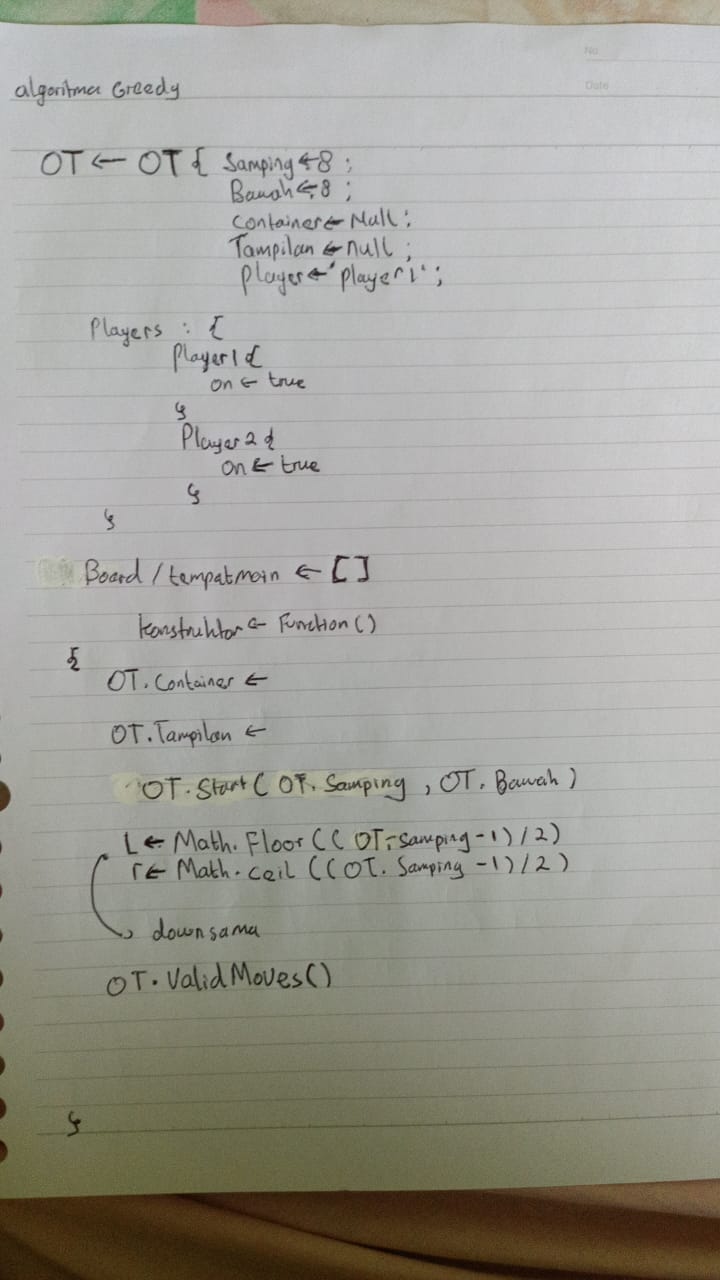 No.
Date
algoritma Greedy
OT ← OT { Samping ← 8 ;
Bawah ← 8 ;
Container ← Null ;
Tampilan ← null ;
Player ← 'player1' ;
Players : {
Player1 {
on ← true
}
Player2 {
on ← true
}
}
Board / tempatmain ← []
konstruktor ← Function()
{
OT.Container ←
OT.Tampilan ←
OT.Start ( OT.Samping , OT.Bawah )
L ← Math.Floor (( OT.samping -1) /2)
r ← Math.ceil ((OT.Samping -1) /2 )
down sama
OT.ValidMoves()
}